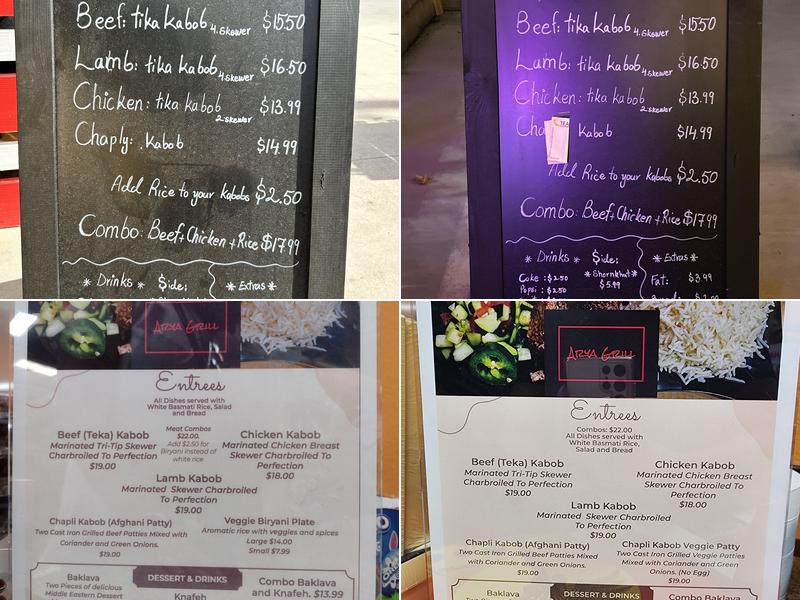 Beef: tika kabob 4.skewer $15.50
Lamb: tika kabob 4.skewer $16.50
Chicken: tika kabob 2.skewer $13.99
Chaply: Kabob $14.99
Add Rice to your Kabobs $2.50
Combo: Beef+Chicken+Rice $17.99
* Drinks * Side: * Extras *
Beef: tika kabob 4.skewer $15.50
Lamb: tika kabob 4.skewer $16.50
Chicken: tika kabob 2.skewer $13.99
Cha Kabob $14.99
Add Rice to your Kabobs $2.50
Combo: Beef+Chicken+Rice $17.99
* Drinks * Side: * Extras *
Coke: $2.50 * Shornkhut * Fat: $3.99
Pepsi: $2.50 $5.99
ARYA GRILL
Entrees
All Dishes served with
White Basmati Rice, Salad
and Bread
Beef (Teka) Kabob
Marinated Tri-Tip Skewer
Charbroiled To Perfection
$19.00
Meat Combos
$22.00.
Add $2.50 for
Biryani instead of
white rice
Chicken Kabob
Marinated Chicken Breast
Skewer Charbroiled To
Perfection
$18.00
Lamb Kabob
Marinated Skewer Charbroiled
To Perfection
$19.00
Chapli Kabob (Afghani Patty)
Two Cast Iron Grilled Beef Patties Mixed with
Coriander and Green Onions.
$19.00
Veggie Biryani Plate
Aromatic rice with veggies and spices
Large $14.00
Small $7.99
DESSERT & DRINKS
Baklava
Two Pieces of delicious
Middle Eastern Dessert
Knafeh
Combo Baklava
and Knafeh. $13.99
ARYA GRILL
Entrees
Combos: $22.00
All Dishes served with
White Basmati Rice,
Salad and Bread
Beef (Teka) Kabob
Marinated Tri-Tip Skewer
Charbroiled To Perfection
$19.00
Chicken Kabob
Marinated Chicken Breast
Skewer Charbroiled To
Perfection
$18.00
Lamb Kabob
Marinated Skewer Charbroiled
To Perfection
$19.00
Chapli Kabob (Afghani Patty)
Two Cast Iron Grilled Beef Patties Mixed
with Coriander and Green Onions.
$19.00
Chapli Kabob Veggie Patty
Two Cast Iron Grilled Veggie Patties
Mixed with Coriander and Green
Onions. (No Egg)
$19.00
DESSERT & DRINKS
Baklava
Combo Baklava